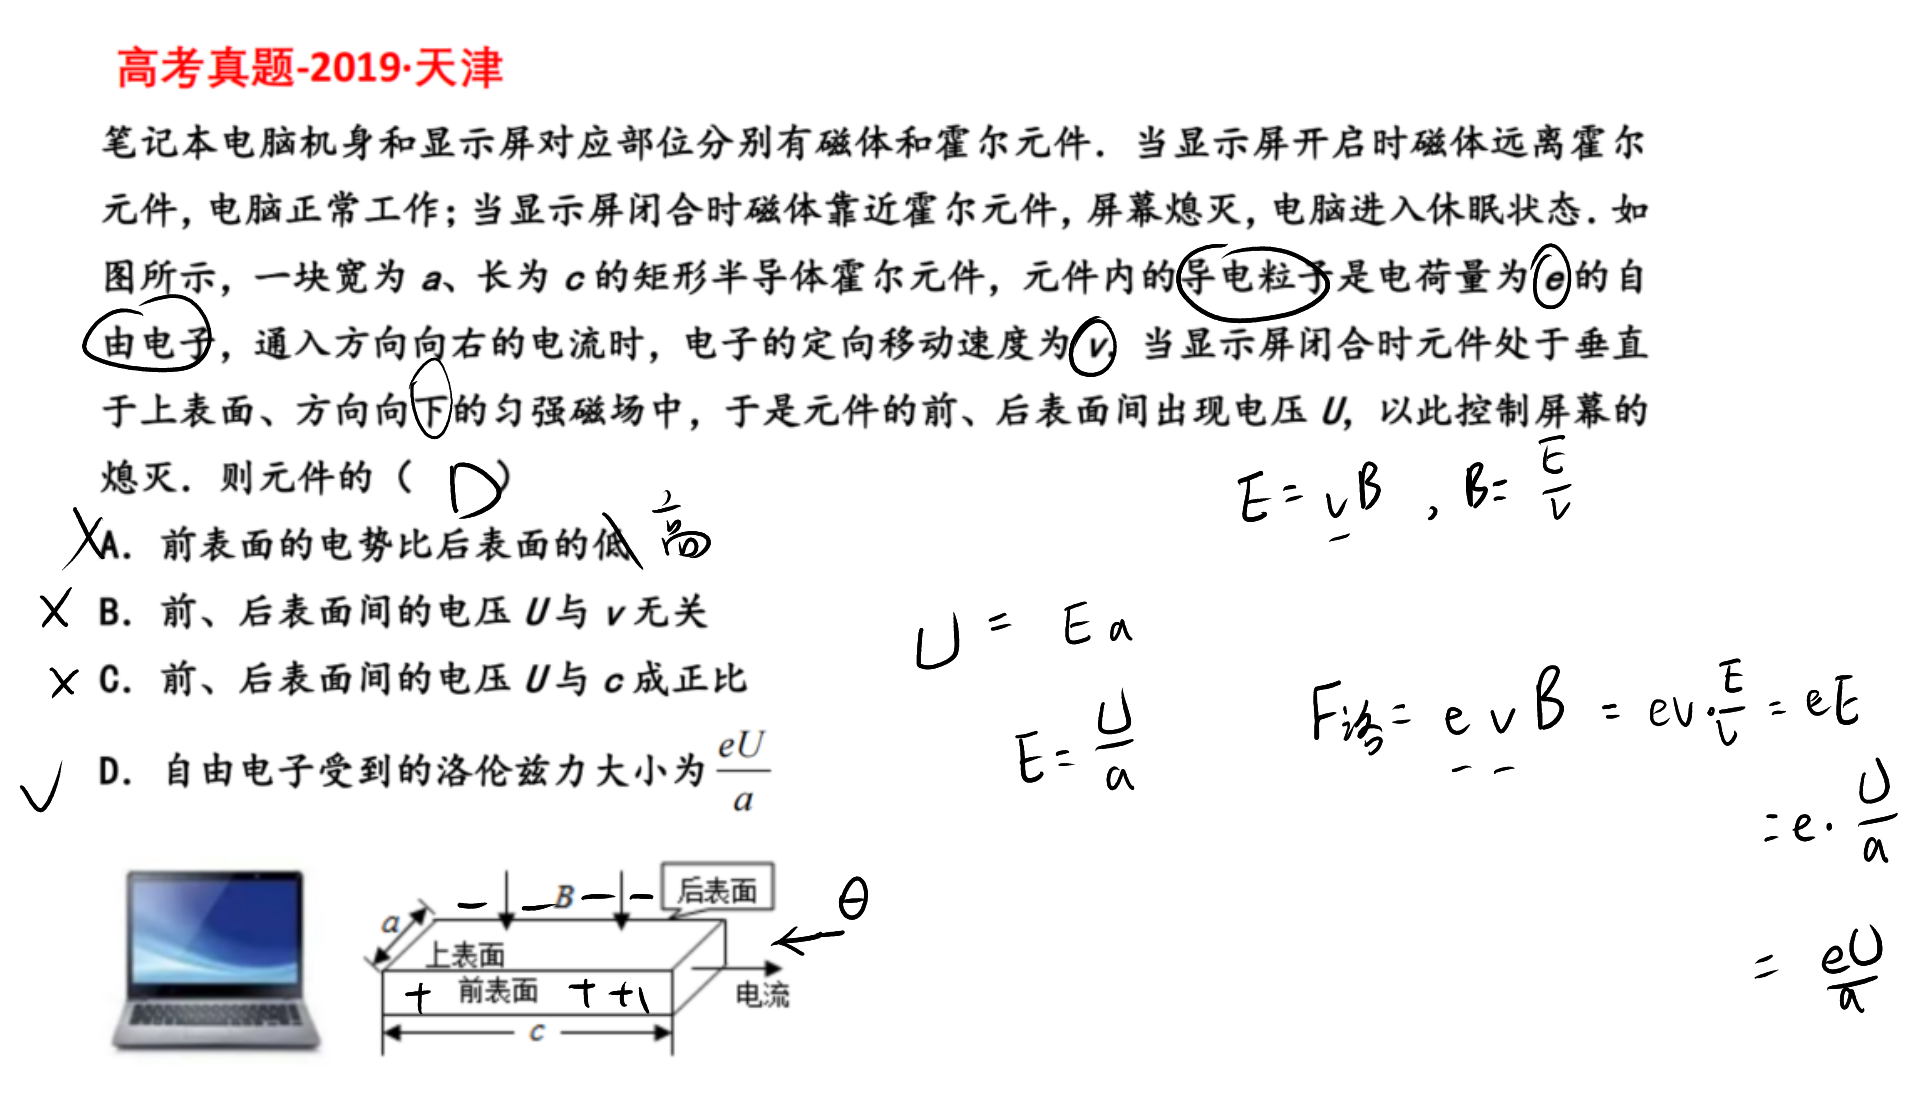 高考真题-2019·天津
笔记本电脑机身和显示屏对应部位分别有磁体和霍尔元件．当显示屏开启时磁体远离霍尔
元件，电脑正常工作；当显示屏闭合时磁体靠近霍尔元件，屏幕熄灭，电脑进入休眠状态．如
图所示，一块宽为 a、长为 c 的矩形半导体霍尔元件，元件内的导电粒子是电荷量为 e 的自
由电子，通入方向向右的电流时，电子的定向移动速度为 v．当显示屏闭合时元件处于垂直
于上表面、方向向下的匀强磁场中，于是元件的前、后表面间出现电压 U，以此控制屏幕的
熄灭．则元件的（ D ）
E = vB , B = E/v
X A．前表面的电势比后表面的低 高
X B．前、后表面间的电压 U 与 v 无关
U = Ea
X C．前、后表面间的电压 U 与 c 成正比
E = U/a
F洛 = evB = ev·E/v = eE
√ D．自由电子受到的洛伦兹力大小为 eU/a
= e·U/a
= eU/a
− − B − − 后表面
a
θ
上表面
+ 前表面 + +
电流
c